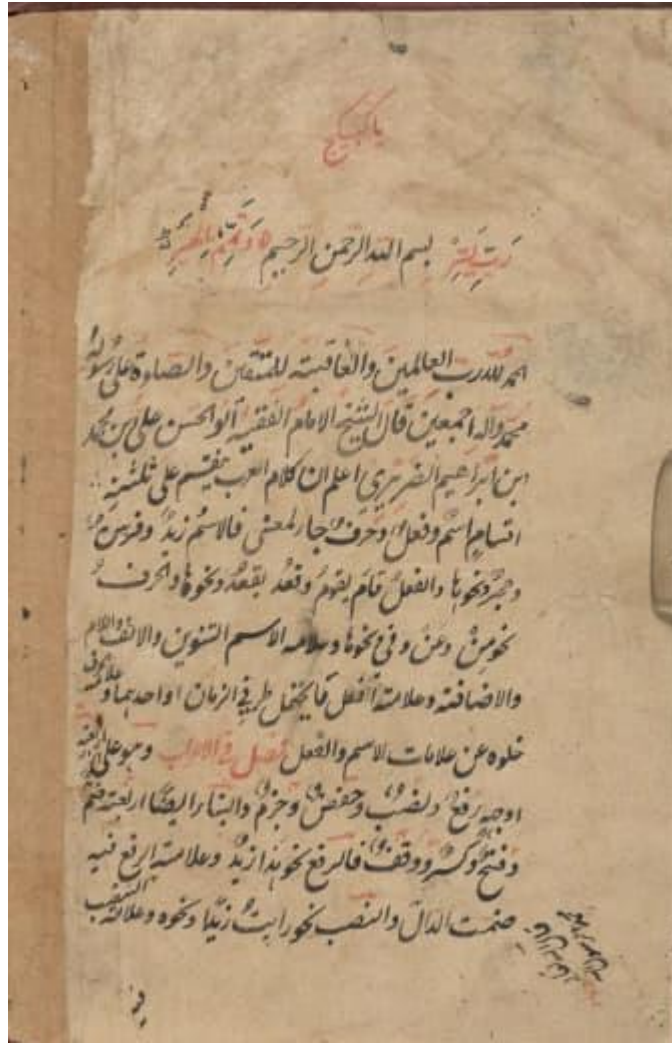 يا كبيكج
رب يسر بسم الله الرحمن الرحيم وتمم بالخير
الحمد لله رب العالمين والعاقبة للمتقين والصلوة على رسوله
محمد وآله اجمعين قال الشيخ الامام الفقيه ابو الحسن علي بن محمد
ابن ابراهيم الضريري اعلم ان كلام العرب ينقسم على ثلثة
اقسام اسم وفعل وحرف جاء لمعنى فالاسم زيد وفرس
وحجر ونحوها والفعل قام يقوم وقعد يقعد ونحوها والحرف
نحو من وعن وفي ونحوها وعلامة الاسم التنوين والالف واللام
والاضافة وعلامة الفعل ما يحتمل طرفي الزمان او احدهما وعلامة الحرف
خلوه عن علامات الاسم والفعل فصل في الاعراب وهو على اربعة
اوجه رفع ونصب وخفض وجزم والبناء ايضا اربعة ضم
وفتح وكسر ووقف فالرفع نحو هذا زيد وعلامة الرفع فيه
ضمت الدال والنصب نحو رايت زيدا ونحوه وعلامة النصب